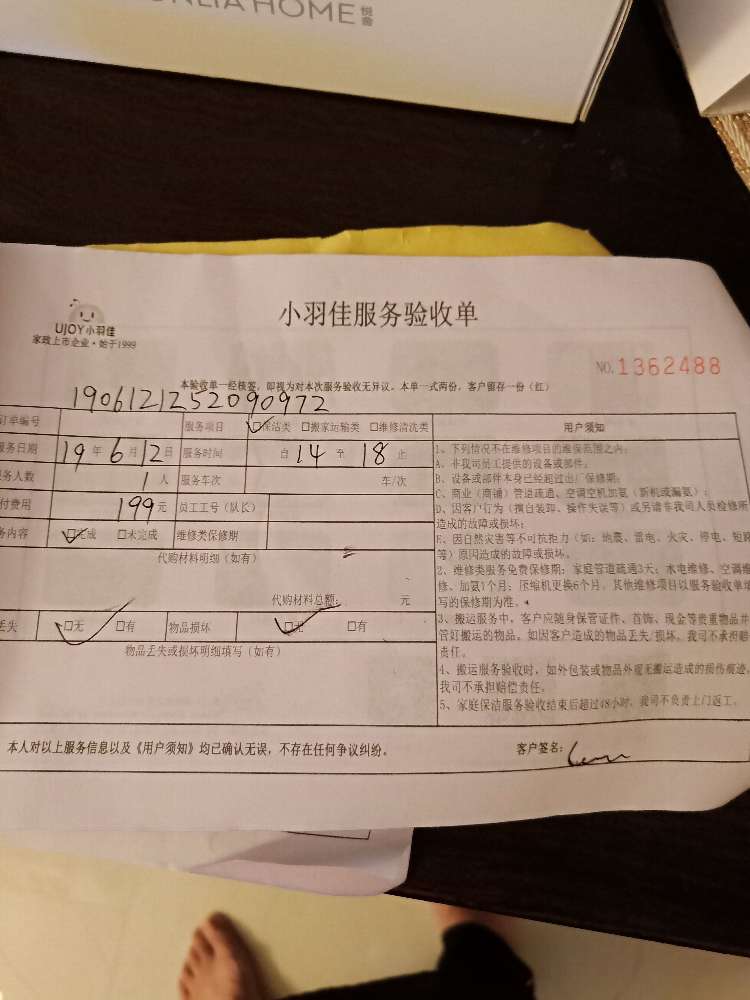 HOME 悦舍
UJOY小羽佳
家政上市企业·始于1999
小羽佳服务验收单
NO.1362488
本验收单一经核签，即视为对本次服务验收无异议。本单一式两份，客户留存一份（红）
1906121252090972
订单编号 服务项目 □保洁类 □搬家运输类 □维修清洗类
服务日期 19年6月12日 服务时间 自14至18止
务人数 1人 服务车次 车/次
付费用 199元 员工工号（队长）
务内容 □完成 □未完成 维修类保修期
代购材料明细（如有）
代购材料总额： 元
丢失 □无 □有 物品损坏 □无 □有
物品丢失或损坏明细填写（如有）
用户须知
1、下列情况不在维修项目的维保范围之内：
A、非我司员工提供的设备或部件；
B、设备或部件本身已经超过出厂保修期；
C、商业（商铺）管道疏通、空调空机加氨（新机或漏氨）；
D、因客户行为（擅自装卸、操作失误等）或另请非我司人员检修所
造成的故障或损坏；
E、因自然灾害等不可抗拒力（如：地震、雷电、火灾、停电、短路
等）原因造成的故障或损坏。
2、维修类服务免费保修期：家庭管道疏通3天；水电维修、空调维
修、加氨1个月；压缩机更换6个月。其他维修项目以服务验收单填
写的保修期为准。
3、搬运服务中，客户应随身保管证件、首饰、现金等贵重物品并
管好搬运的物品。如因客户造成的物品丢失/损坏，我司不承担赔
责任。
4、搬运服务验收时，如外包装或物品外观无搬运造成的损伤痕迹，
我司不承担赔偿责任。
5、家庭保洁服务验收结束后超过48小时，我司不负责上门返工。
本人对以上服务信息以及《用户须知》均已确认无误，不存在任何争议纠纷。 客户签名：